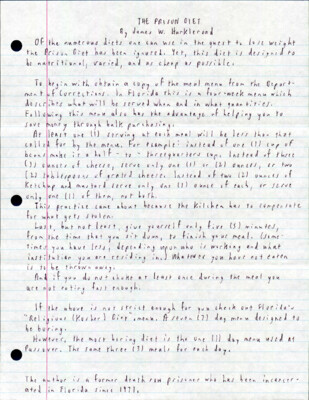 THE PRISON DIET
By James W. Harklerood
Of the numerous diets one can use in the quest to lose weight
the Prison Diet has been ignored. Yet, this diet is designed to
be nutritional, varied, and as cheap as possible.
To begin with obtain a copy of the meal menu from the Depart-
ment of Corrections. In Florida this is a four-week menu which
describes what will be served when and in what quantities.
Following this menu also has the advantage of helping you to
save money through bulk purchasing.
At least one (1) serving at each meal will be less than that
called for by the menu. For example: instead of one (1) cup of
beans make is a half - to - cup. Instead of three
(3) ounces of cheese, serve only one (1) or (2) ounces, or two
(2) tablespoons of grated cheese. Instead of two (2) ounces of
Ketchup and mustard serve only one (1) ounce of each, or serve
only one (1) of them, not both.
This practice came about because the Kitchen has to compensate
for what gets stolen.
Last, but not least, give yourself only five (5) minutes,
from the time that you sit down, to finish your meal. (Some-
times you have less, depending upon who is working and what
institution you are residing in.) Whatever you have not eaten
is to be thrown away.
And if you do not choke at least once during the meal you
are not eating fast enough.
If the above is not strict enough for you check out Florida's
"Religious (Kosher) Diet" menu. A seven (7) day menu designed
to be boring.
However, the most boring diet is the one (1) day menu used at
Passover. The same three (3) meals for each day.
The author is a former death row prisoner who has been incarcer-
ated in Florida since 1973.